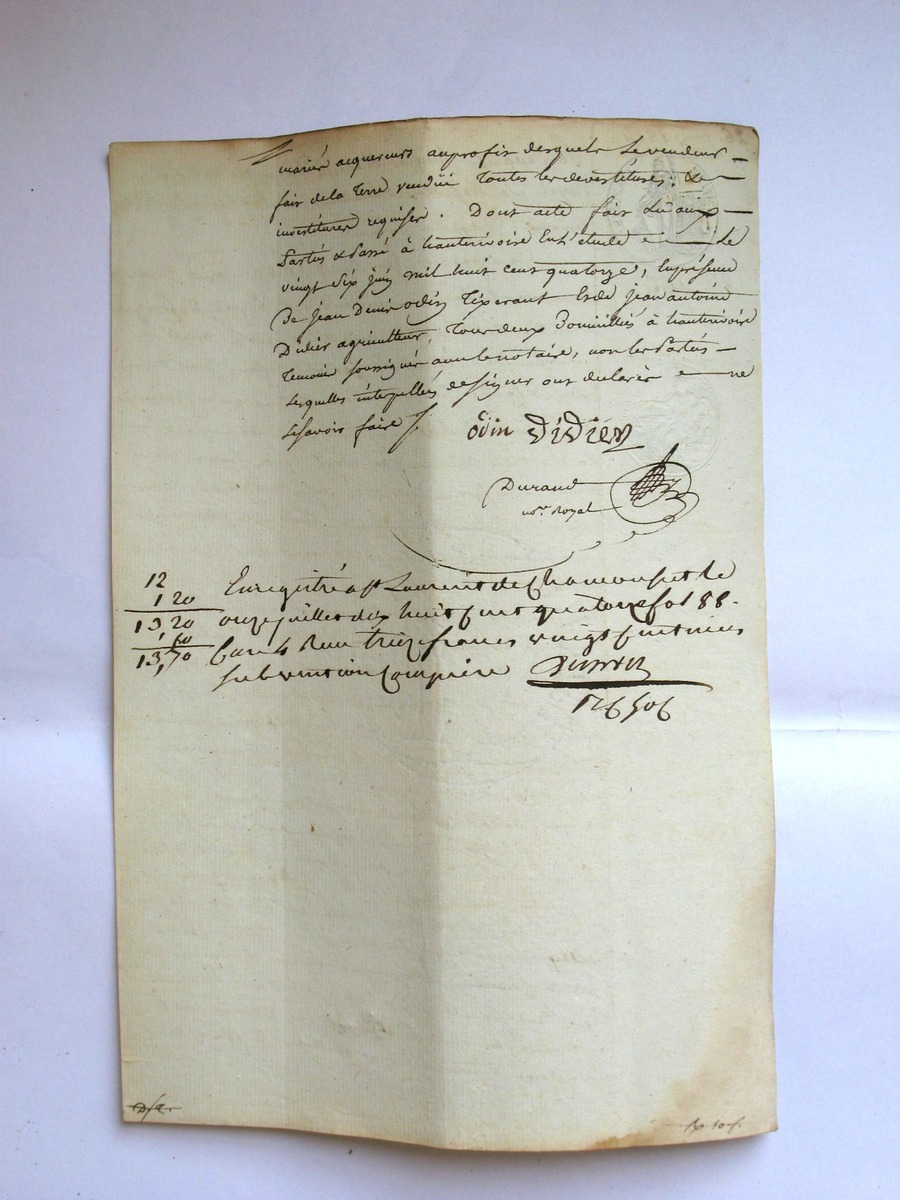 mariés acquereurs auprofit desquels le vendeur
fait de la Terre vendüe Toutes les devestitures &
investitures requises. Dont acte fait Lu aux
Partés & Passé à hauterivoire En l'étude le
vingt six juin mil huit cent quatorze, En présence
De jean Denis odin Tixerant Et de jean antoine
Didier agriculteur, Tous deux Domiciliés à hauterivoire
Temoins soussignés avec le notaire, non les Partés
Lesquelles interpellées de signer ont declarés ne
le savoir faire
odin Didier
Durand
no.re Royal
12
1 20
13 20
13,70
Enregistré a St Laurent de Chamousset le
onze juillet dix huit cent quatorze fol 88.
Case 4 Reçu treize francs vingt centimes
subvention Comprise